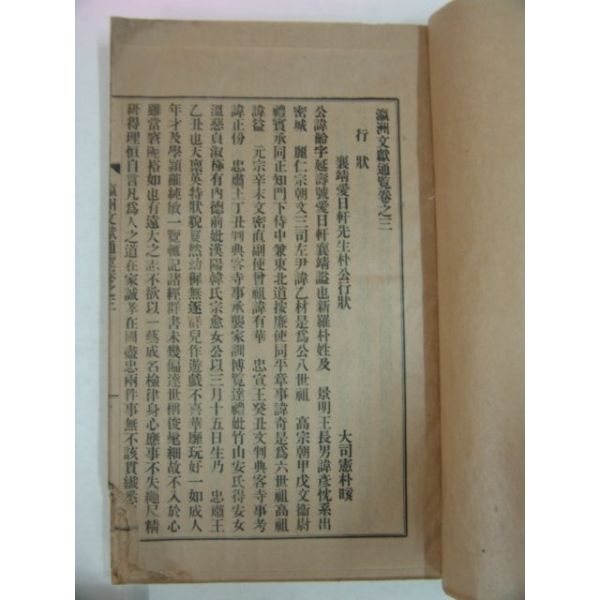 瀛洲文獻通覽卷之三
行狀
襄靖愛日軒先生朴公行狀 大司憲朴
公諱齡字延壽號愛日軒襄靖諡也新羅朴姓及 景明王長男諱彥忱系出
密城 麗仁宗朝文三司左尹諱乙材是爲公八世祖 高宗朝甲戌文衞尉
禮賓承同正知門下侍中兼東北道按廉使同平章事諱奇是爲六世祖高祖
諱益 元宗辛未文密直副使曾祖諱有華 忠宣王癸丑文判典客寺事考
諱正份 忠肅王丁丑判典客寺事承襲家訓博覽達禮妣竹山安氏得安女
溫慈貞淑極有內德前妣漢陽韓氏宗愈女公以三月十五日生乃 忠肅王
乙丑也天禀英特狀貌嶷然幼穉無逐群兒作遊戲不喜華靡玩好一如成人
年才及學穎睢純敏一覽輒記諸經群書未幾偏達世稱俊髦細故不入於心
雖當窘隘裕如也有遠大之志不欲以一藝成名檢律身心應事不失繩尺精
硏得理恒自言凡爲人之道在家誠孝在國盡忠兩件事無不該貫纖悉
瀛洲文獻通覽卷之三